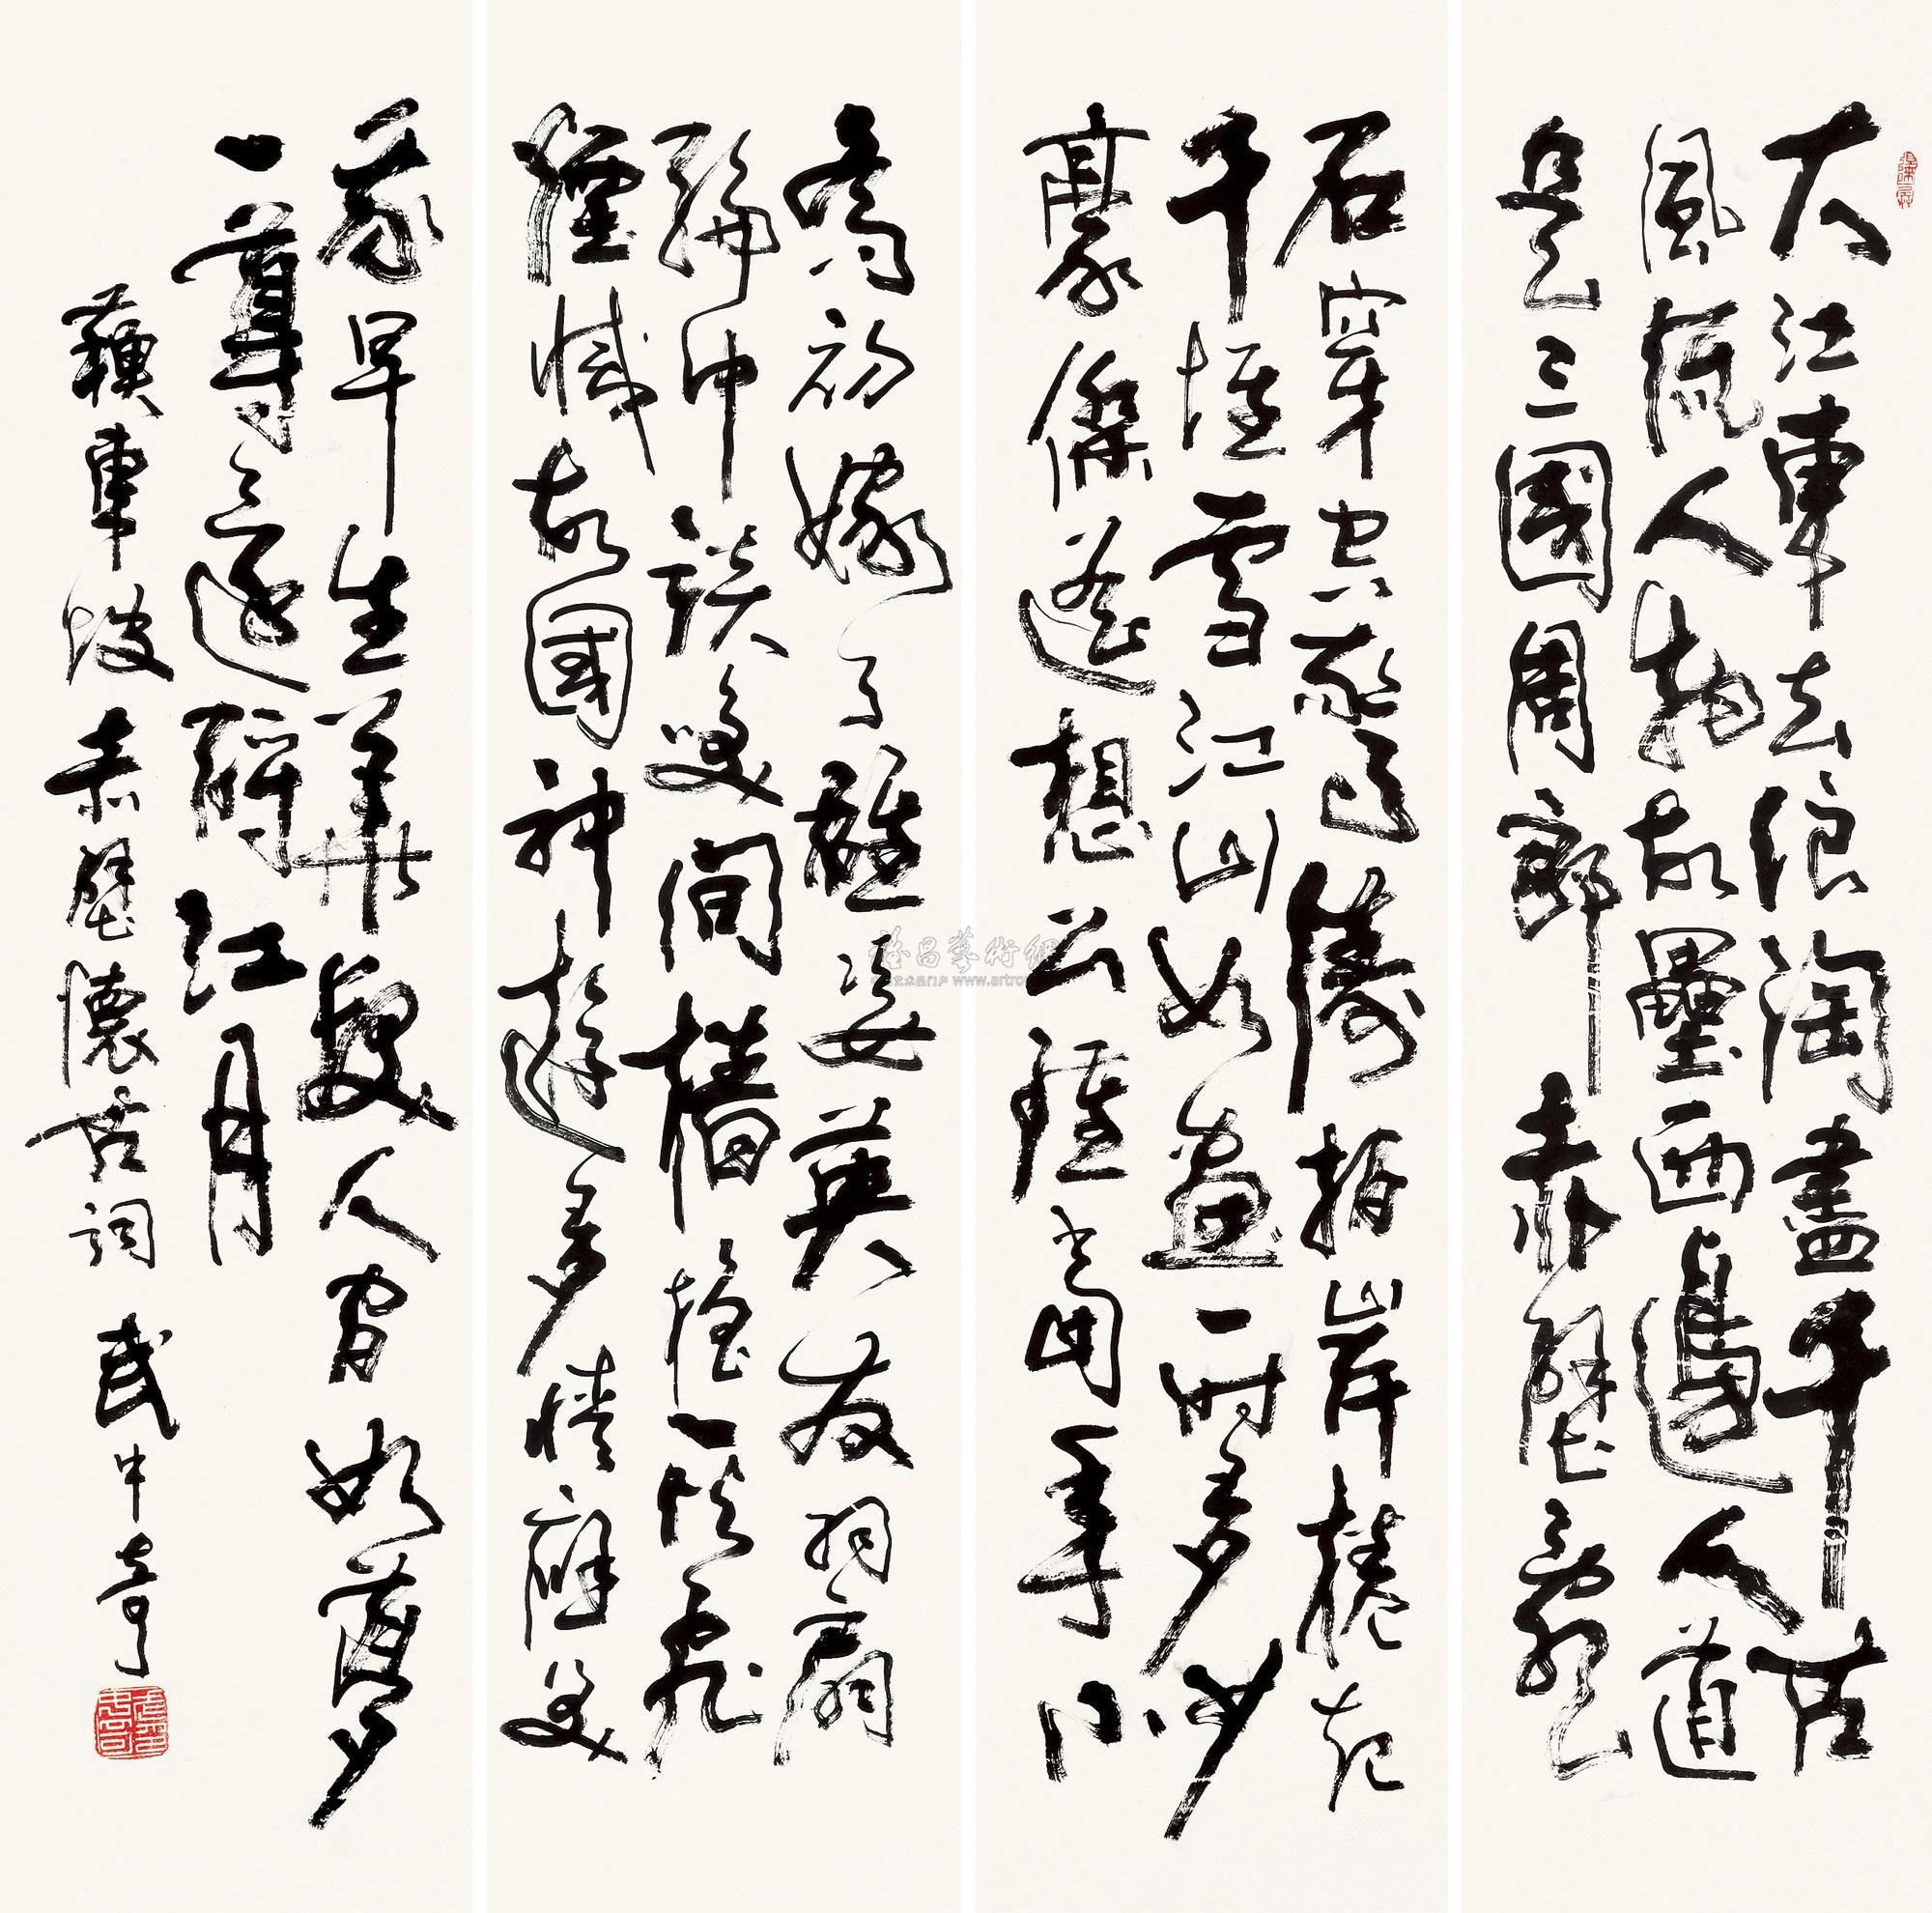 大江東去浪淘盡千古
風流人物故壘西邊人道
是三國周郎赤壁亂
石穿空驚濤拍岸捲起
千堆雪江山如畫一時多少
豪傑遙想公瑾當年小
喬初嫁了雄姿英發羽扇
綸巾談笑間檣櫓灰飛
煙滅故國神遊多情應笑
我早生華髮人間如夢
一尊還酹江月
蘇東坡赤壁懷古詞 武中奇
昌藝術網